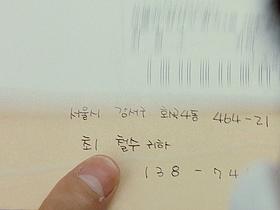 서울시 강서구 화곡4동 464-21
최 철수 귀하
138-74